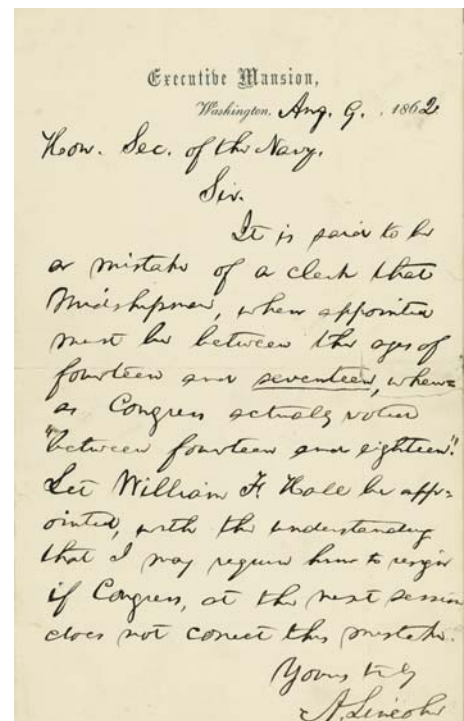 Executive Mansion,
Washington, Aug. 9, 1862
Hon. Sec. of the Navy.
Sir.
It is said to be
a mistake of a clerk that
Midshipmen, when appointed
must be between the ages of
fourteen and seventeen, where=
as Congress actually voted
"between fourteen and eighteen".
Let William F. Hall be app=
ointed, with the understanding
that I may require him to resign
if Congress, at the next session
does not correct this mistake.
Yours truly
A. Lincoln